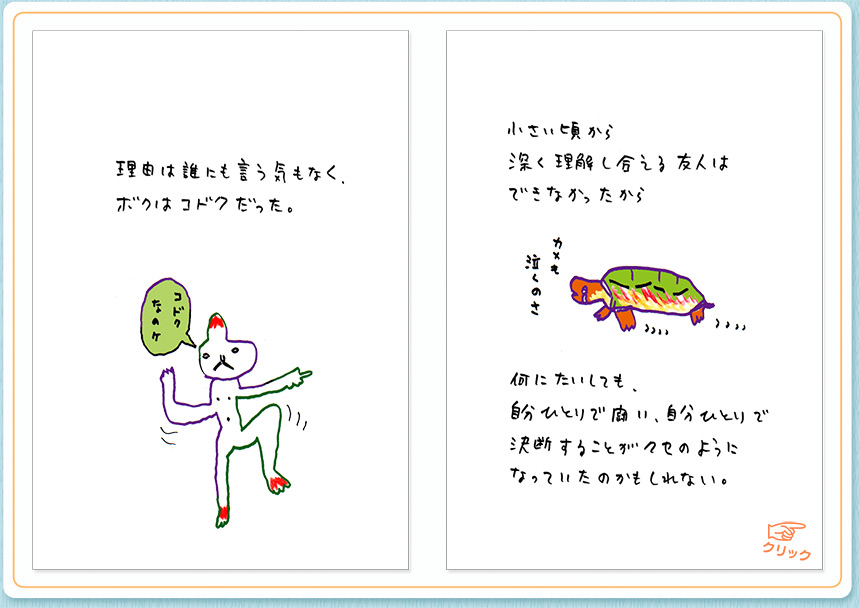 理由は誰にも言う気もなく、
ボクはコドクだった。
コドク
なのケ
小さい頃から
深く理解し合える友人は
できなかったから
カメも
泣くのさ
何にたいしても、
自分ひとりで闘い、自分ひとりで
決断することがクセのように
なっていたのかもしれない。
クリック